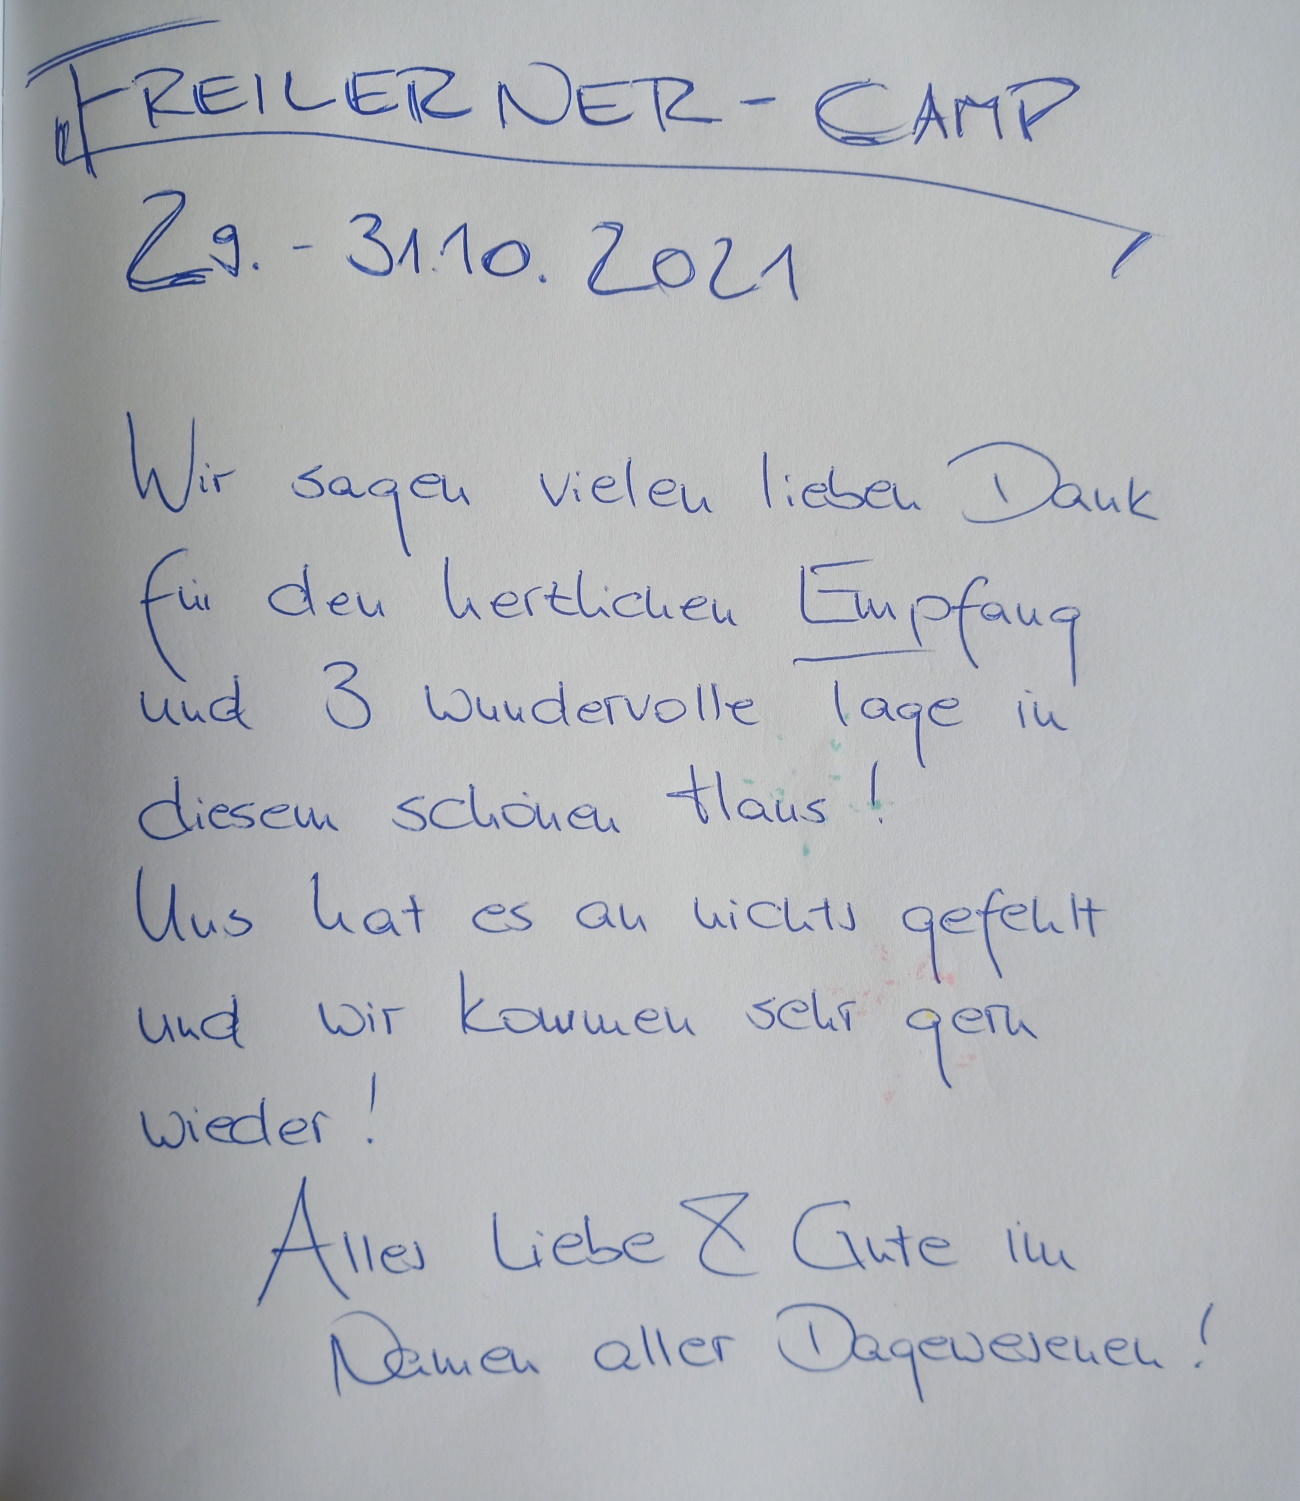 FREILERNER-CAMP
29.-31.10.2021
Wir sagen vielen lieben Dank
für den herzlichen Empfang
und 3 wundervolle Tage in
diesem schönen Haus!
Uns hat es an nichts gefehlt
und wir kommen sehr gern
wieder!
Alles Liebe & Gute im
Namen aller Dagewesenen!